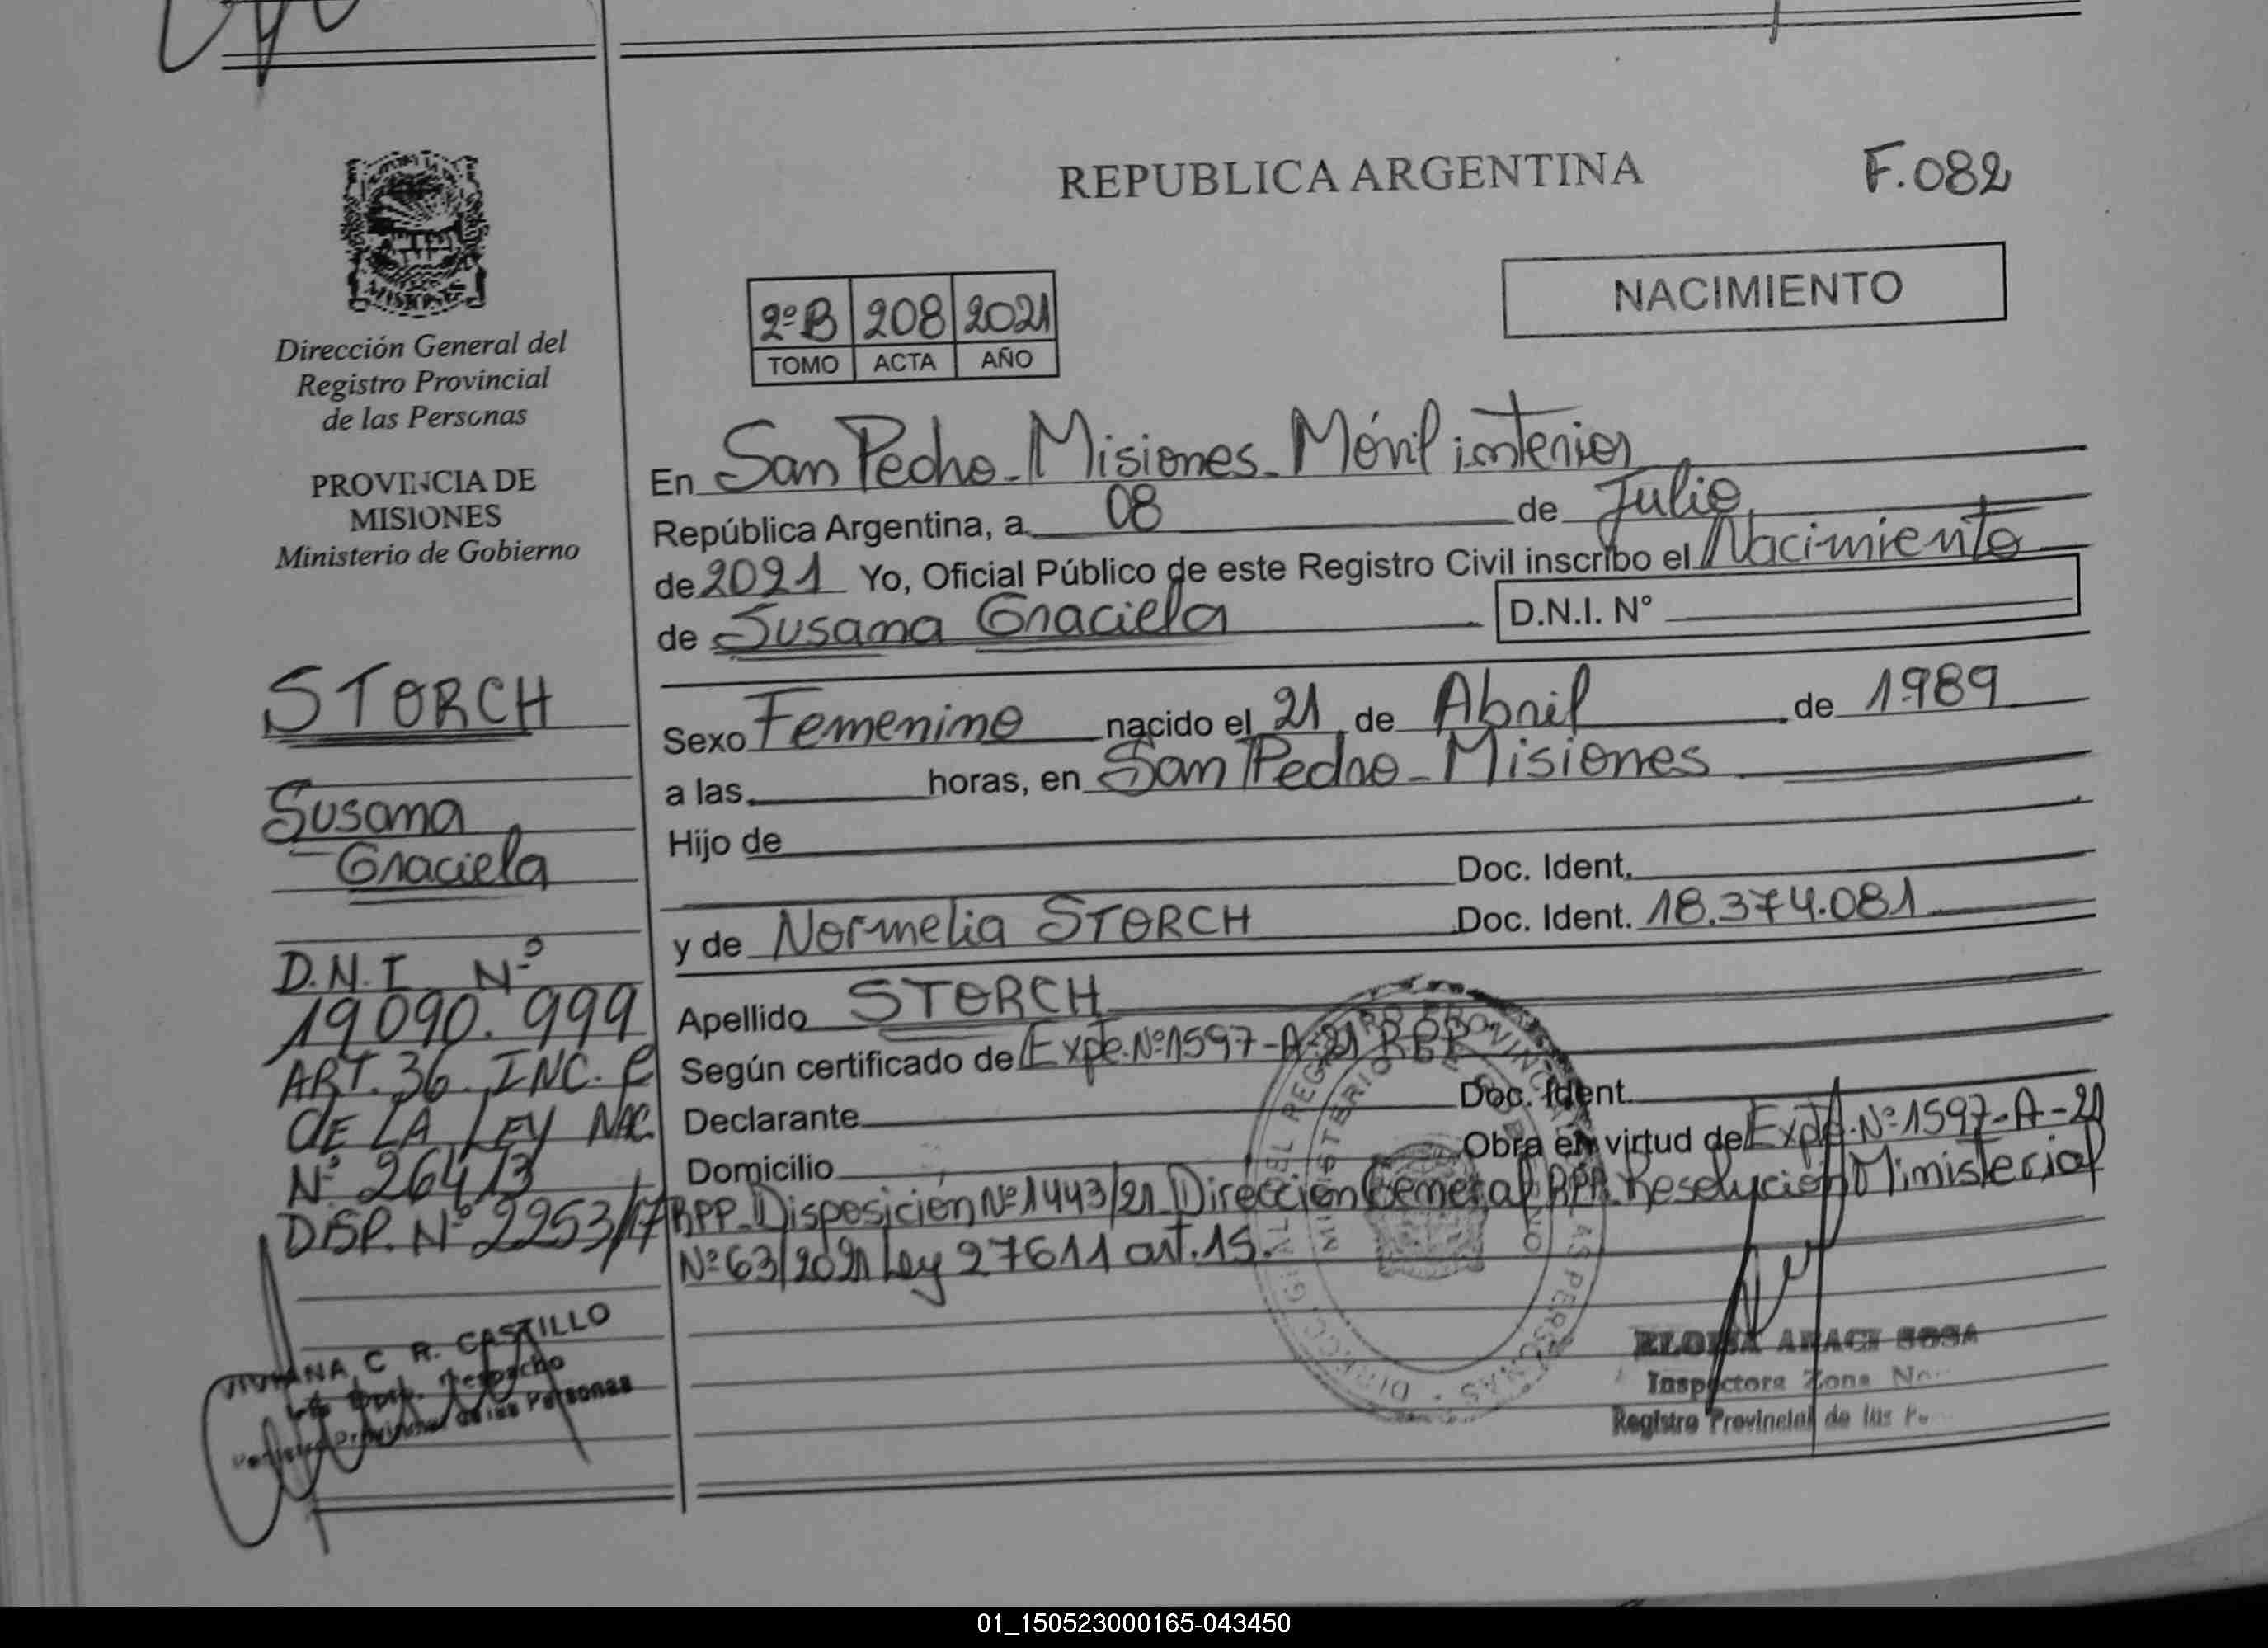 REPUBLICA ARGENTINA
F.082
NACIMIENTO
2ºB 208 2021
TOMO ACTA AÑO
MISIONES
Dirección General del
Registro Provincial
de las Personas
PROVINCIA DE
MISIONES
Ministerio de Gobierno
STORCH
Susana
Graciela
D.N.I Nº
19090.999
ART. 36 INC. C
DE LA LEY NAC.
Nº 26413
DISP. Nº 2253/17
VIVIANA C R. CASTILLO
Despacho
de las Personas
En San Pedro - Misiones - Móvil interior
República Argentina, a 08 de Julio
de 2021 Yo, Oficial Público de este Registro Civil inscribo el Nacimiento
de Susana Graciela D.N.I. N°
Sexo Femenino nacido el 21 de Abril de 1989
a las horas, en San Pedro - Misiones
Hijo de
Doc. Ident.
y de Normelia STORCH Doc. Ident. 18.374.081
Apellido STORCH
Según certificado de Expte. Nº 1597-A-21 RPP
Declarante Doc. Ident.
Domicilio Obra en virtud de Expte. Nº 1597-A-21
RPP - Disposición Nº 1443/21 - Dirección General RPP. Resolución Ministerial
Nº 63/2021 Ley 27611 art. 15.
ELOISA ARACI SOSA
Inspectora Zona
Registro Provincial de las
01_150523000165-043450